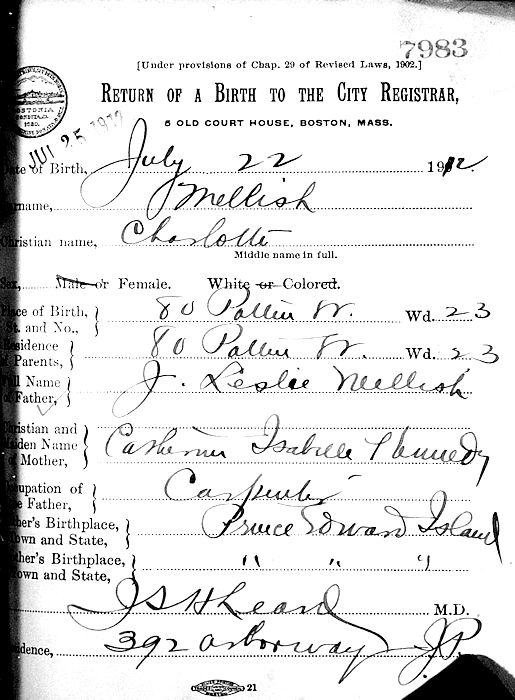 7983
[Under provisions of Chap. 29 of Revised Laws, 1902.]
RETURN OF A BIRTH TO THE CITY REGISTRAR,
5 OLD COURT HOUSE, BOSTON, MASS.
JUL 25 1912
Date of Birth, July 22 1912.
Surname, Mellish
Christian name, Charlotte
Middle name in full.
Sex, Male or Female. White or Colored.
Place of Birth, St. and No., 80 Patten St. Wd. 23
Residence of Parents, 80 Patten St. Wd. 23
Full Name of Father, J. Leslie Mellish
Christian and Maiden Name of Mother, Catherine Isabelle Kennedy
Occupation of the Father, Carpenter
Father's Birthplace, Town and State, Prince Edward Island
Mother's Birthplace, Town and State, " " "
J S H Leard M.D.
Residence, 392 Arborway J.P.
21